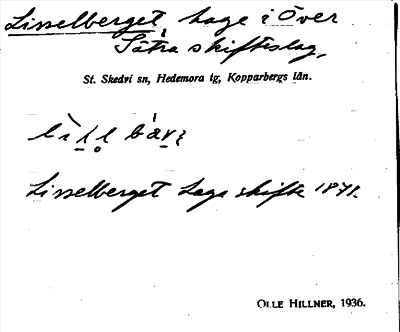 Lisselberget, Laga i Över
Sätra skifteslag,
St. Skedvi sn, Hedemora tg, Kopparbergs län.
Lisselberget Laga skifte 1871.
OLLE HILLNER, 1936.